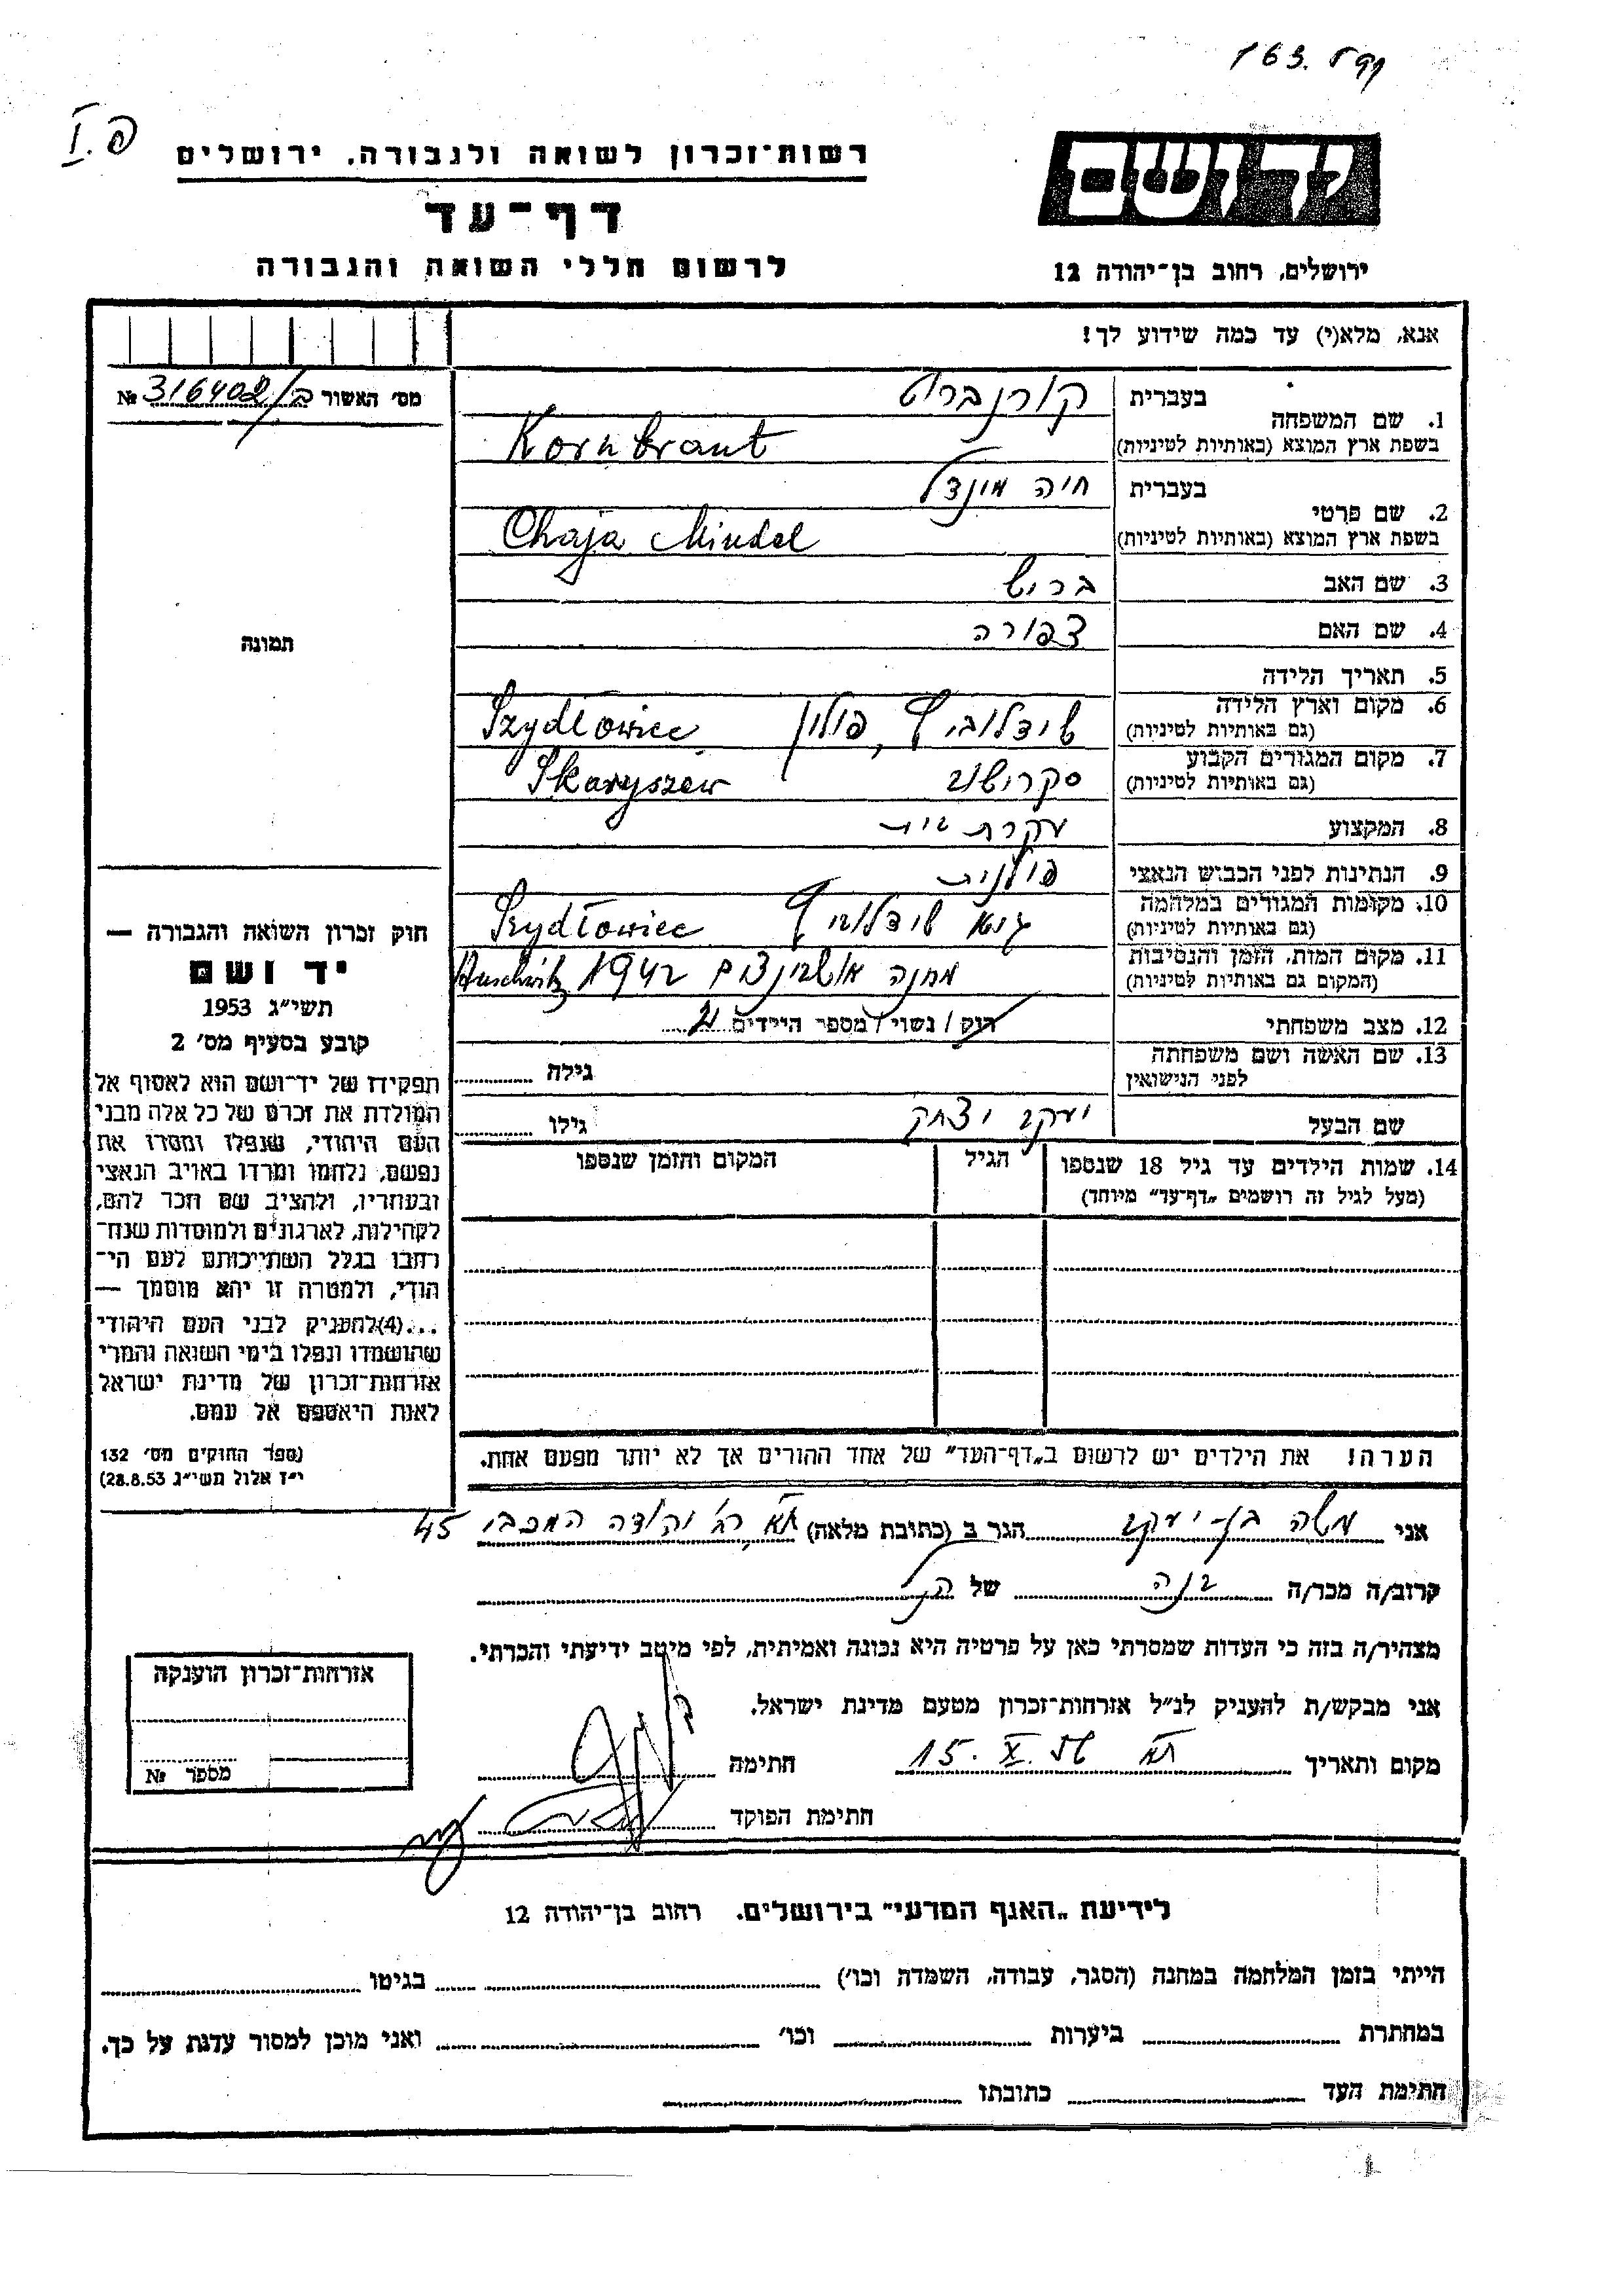 163. קפ
פ. I
יד ושם
רשות־זכרון לשואה ולגבורה, ירושלים
דף־עד
לרשום חללי השואה והגבורה
ירושלים, רחוב בן־יהודה 12
אנא, מלא(י) עד כמה שידוע לך!
מס׳ האשור ב/316402 №
1. שם המשפחה
בעברית קורנברט
בשפת ארץ המוצא (באותיות לטיניות) Kornbrant
2. שם פרטי
בעברית חיה מינדל
בשפת ארץ המוצא (באותיות לטיניות) Chaja Mindel
3. שם האב ברוש
4. שם האם צפורה
5. תאריך הלידה
6. מקום וארץ הלידה שידלוביץ, פולין Szydłowiec
(גם באותיות לטיניות)
7. מקום המגורים הקבוע סקרישוב Skaryszew
(גם באותיות לטיניות)
8. המקצוע עקרת בית
9. הנתינות לפני הכבוש הנאצי פולנית
10. מקומות המגורים במלחמה גטו שידלוביץ Szydłowiec
(גם באותיות לטיניות)
11. מקום המות, הזמן והנסיבות מחנה אושבינצים 1942 Auschwitz
(המקום גם באותיות לטיניות)
12. מצב משפחתי רוק / נשוי / מספר הילדים 2
13. שם האשה ושם משפחתה
לפני הנישואין
גילה
שם הבעל יעקב יצחק גילו
14. שמות הילדים עד גיל 18 שנספו
(מעל לגיל זה רושמים „דף־עד״ מיוחד)
הגיל
המקום והזמן שנספו
הערה! את הילדים יש לרשום ב„דף־העד״ של אחד ההורים אך לא יותר מפעם אחת.
תמונה
חוק זכרון השואה והגבורה —
יד ושם
תשי״ג 1953
קובע בסעיף מס׳ 2
תפקידו של יד־ושם הוא לאסוף אל
המולדת את זכרם של כל אלה מבני
העם היהודי, שנפלו ומסרו את
נפשם, נלחמו ומרדו באויב הנאצי
ובעוזריו, ולהציב שם וזכר להם,
לקהילות, לארגונים ולמוסדות שנח־
רבו בגלל השתייכותם לעם הי־
הודי, ולמטרה זו יהא מוסמך —
...(4)להעניק לבני העם היהודי
שהושמדו ונפלו בימי השואה והמרי
אזרחות־זכרון של מדינת ישראל
לאות היאספם אל עמם.
(ספר החוקים מס׳ 132
י״ז אלול תשי״ג 28.8.53)
אני משה בן-יעקב הגר ב (כתובת מלאה) תא רח׳ יהודה המכבי 45
קרוב/ה מכר/ה בנה של הנ״ל
מצהיר/ה בזה כי העדות שמסרתי כאן על פרטיה היא נכונה ואמיתית, לפי מיטב ידיעתי והכרתי.
אני מבקש/ת להעניק לנ״ל אזרחות־זכרון מטעם מדינת ישראל.
מקום ותאריך תא 15. X. 56 חתימה
חתימת הפוקד
אזרחות־זכרון הוענקה
מספר №
לידיעת „האגף המדעי״ בירושלים. רחוב בן־יהודה 12
הייתי בזמן המלחמה במחנה (הסגר, עבודה, השמדה וכו׳) בגיטו
במחתרת ביערות וכו׳ ואני מוכן למסור עדות על כך.
חתימת העד כתובתו